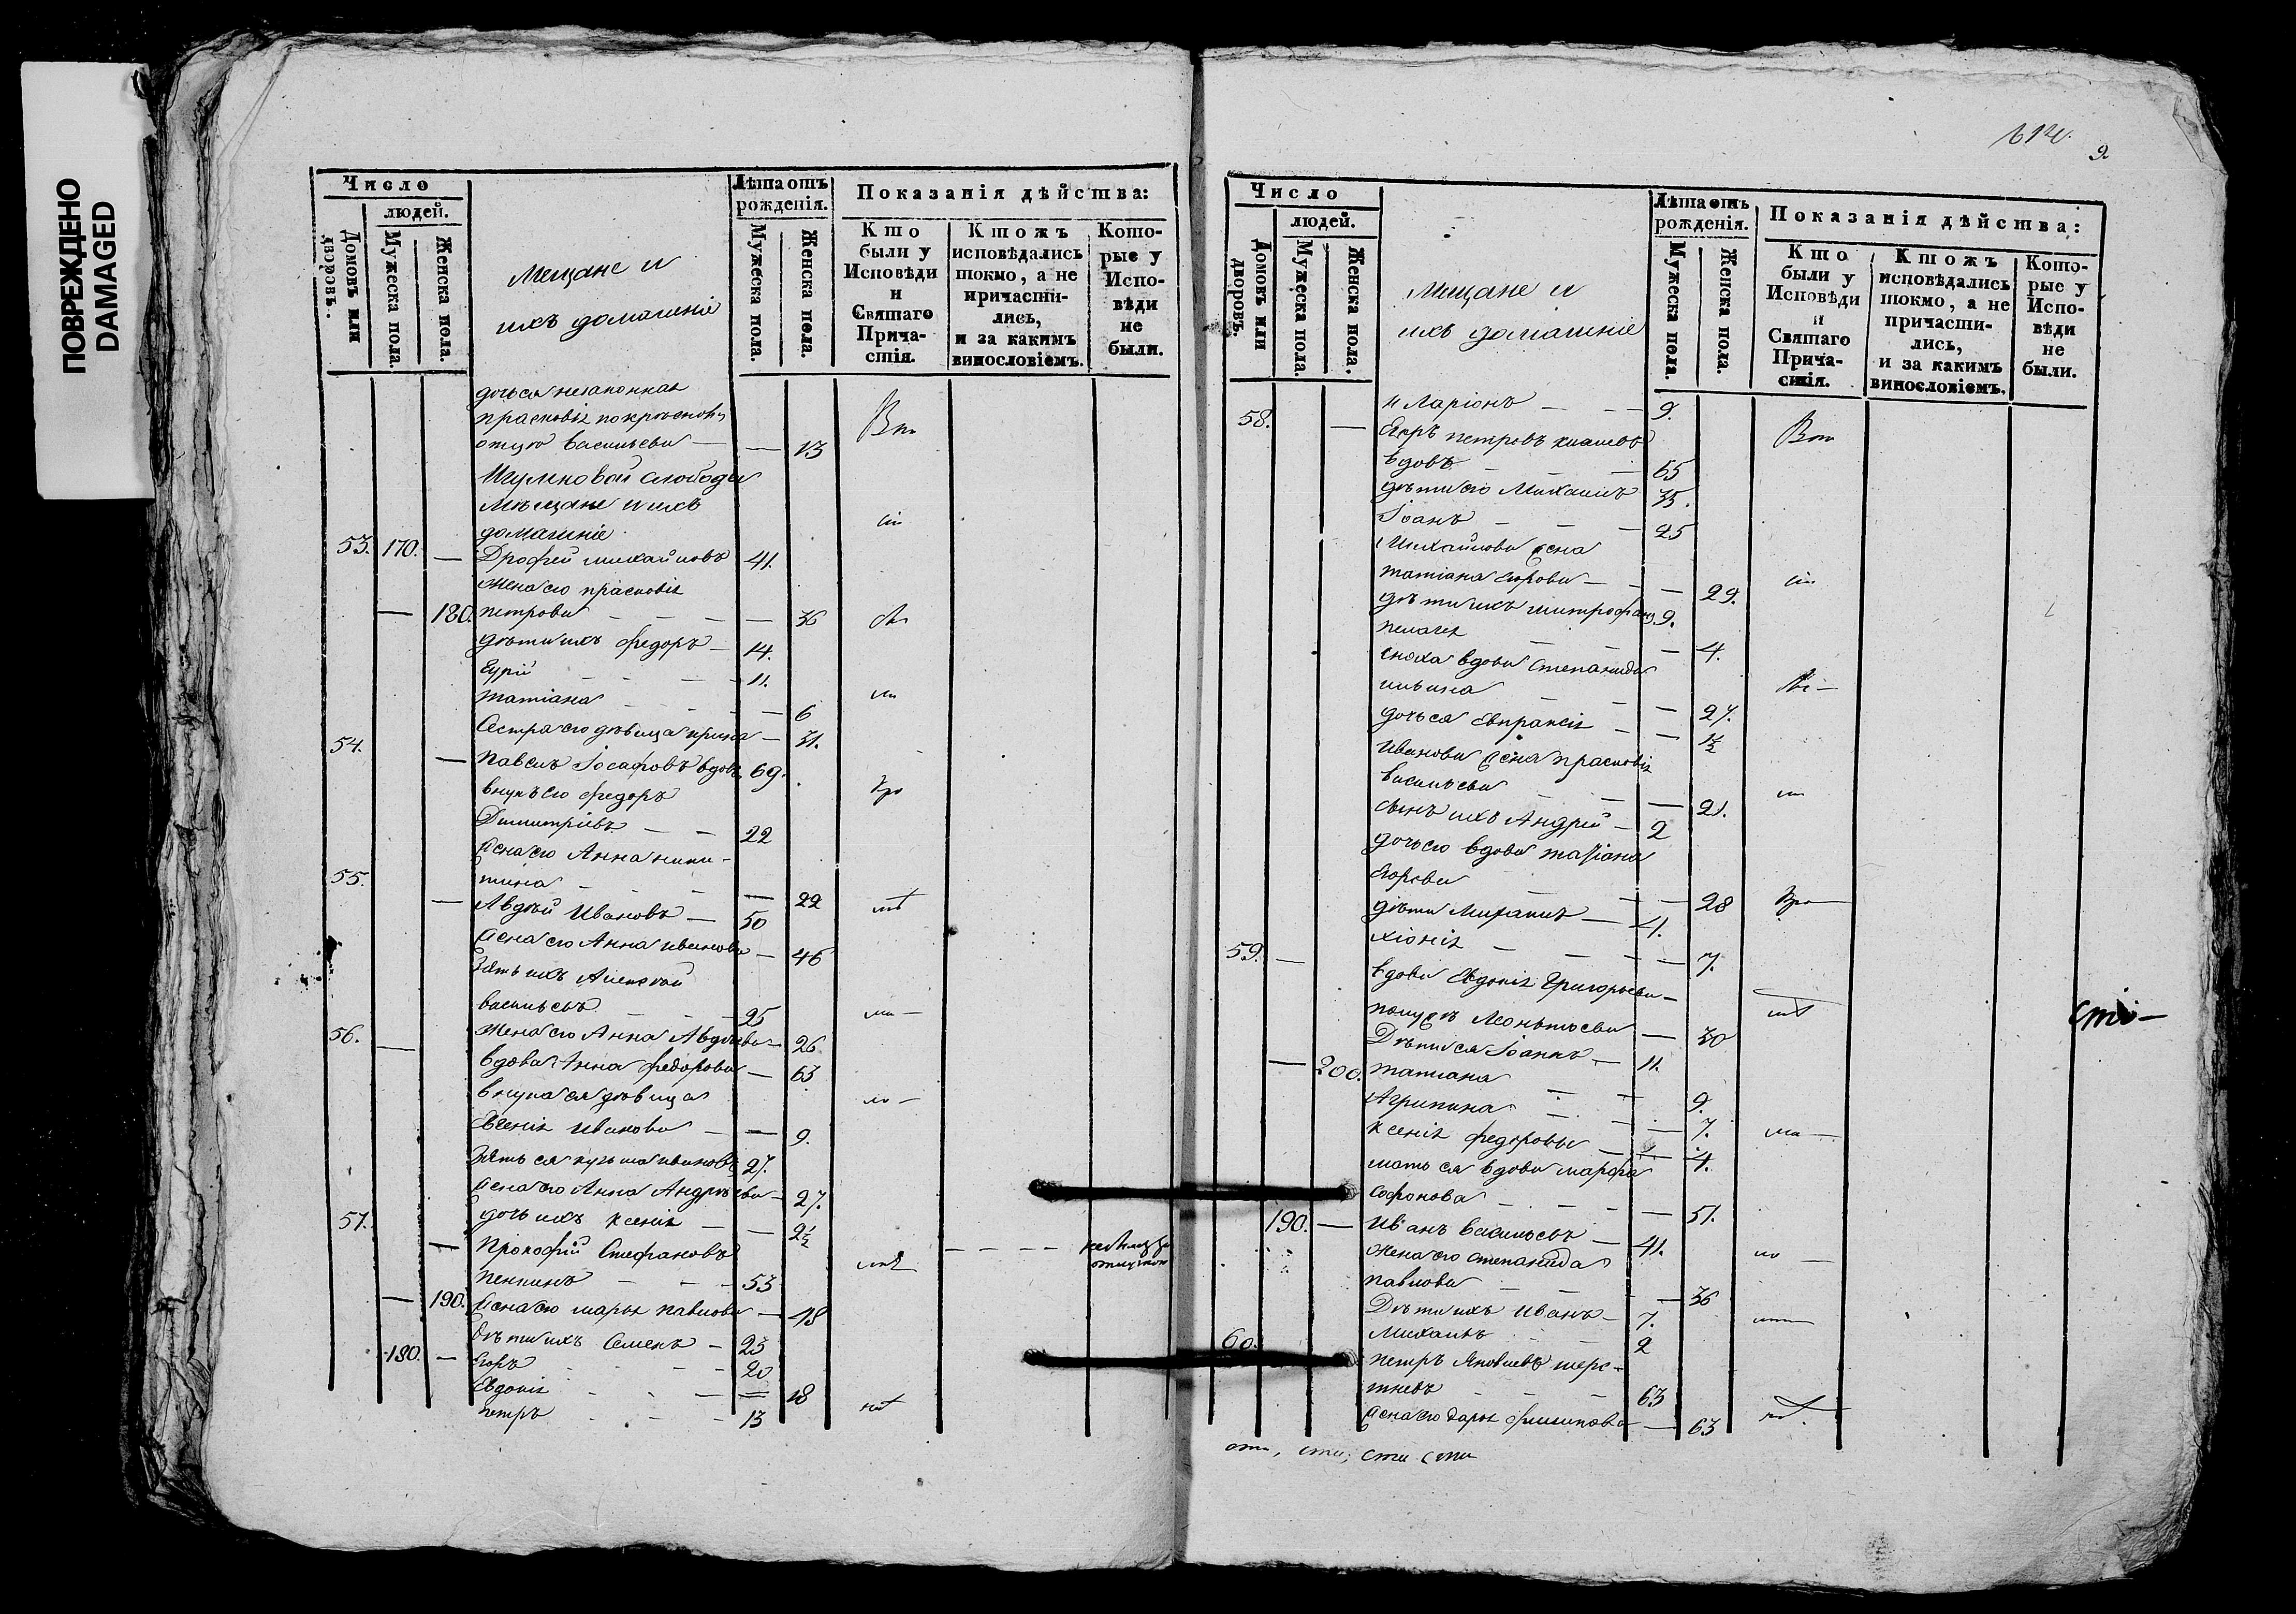 ПОВРЕЖДЕНО
DAMAGED
Число
людей.
Домовъ или дворовъ.
Мужеска пола.
Женска пола.
Мещане и
ихъ домашніе
Лѣта отъ рожденія.
Мужеска пола.
Женска пола.
Показанія дѣйства:
Кто были у Исповѣди и Святаго Причастія.
Ктожъ исповѣдались токмо, а не причастились, и за какимъ винословіемъ.
Которые у Исповѣди не были.
дочь ея незаконная
прасковія по крестному
отцу васильева — — 13
слободы
Мѣщане и ихъ
домашніе
53. 170. — Дрофей михайловъ 41.
жена его прасковія
— 180. петрова — — — — 36
дѣти ихъ федоръ — 14.
Гурій — — — 11.
татіана — — — 6
Сестра его дѣвица ирина — 31.
54. — Павелъ Іосафовъ вдовъ 69.
внукъ его федоръ
Димитріевъ — — 22
жена его Анна ники-
тина — — — — 22
55. — Авдѣй Ивановъ — 50
жена его Анна иванова — 46
Зять ихъ Алексѣй
васильевъ — — — 25
жена его Анна Авдѣева — 26
56. — вдова Анна федорова — 63
внука ея дѣвица
Евгенія иванова — — 9.
Зять ея кузьма ивановъ 27.
жена его Анна Андрѣева — 27.
дочь ихъ ксенія — — 2½
57. — Прокофій Стефановъ
пенкинъ — — — 53
— 190. жена его марья павлова — 48
дѣти ихъ Семенъ — 25
180. — Егоръ — — — 20
Евдокія — — — 18
петръ — — — 13
614.
Число
людей.
Домовъ или дворовъ.
Мужеска пола.
Женска пола.
Мещане и
ихъ домашніе
Лѣта отъ рожденія.
Мужеска пола.
Женска пола.
Показанія дѣйства:
Кто были у Исповѣди и Святаго Причастія.
Ктожъ исповѣдались токмо, а не причастились, и за какимъ винословіемъ.
Которые у Исповѣди не были.
иларіонъ — — — 9.
58. — Егоръ петровъ
вдовъ — — — 65
дѣти его Михаилъ 35.
Іоанъ — — — 25
Михайлова жена
татіана егорова — — — 29.
дѣти ихъ митрофанъ 9.
пелагея — — — 4.
сноха вдова степанида
ильина — — — 27.
дочь ея Евпраксія — — 1½
Иванова жена прасковія
васильева — — — 21.
сынъ ихъ Андрей — 2
дочь его вдова татіана
Егорова — — — 28
дѣти Михаилъ — 4.
хіонія — — — 7.
59. — вдова Евдокія Григорьева —
Леонтьева — 30
Дѣти ея Іоаннъ — 11.
— 200. татиана — — 9.
Агрипина — — — 7.
ксенія федоровы — — 4.
мать ея вдова марфа
Софонова — — — — 51.
190. — Иванъ васильевъ — 41.
жена его степанида
павлова — — — 36
Дѣти ихъ Иванъ — 7.
Михаилъ — — 2
60. петръ Яковлевъ шерс-
тневъ — — — 63
жена его дарья филипова — 63
сти, сти, сти сти